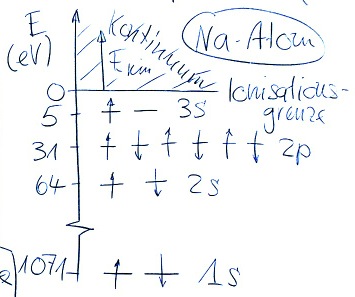 E
(eV)
Kontinuum
Ekin
Na-Atom
0 Ionisations-
grenze
5 3s
31 2p
64 2s
1071 1s